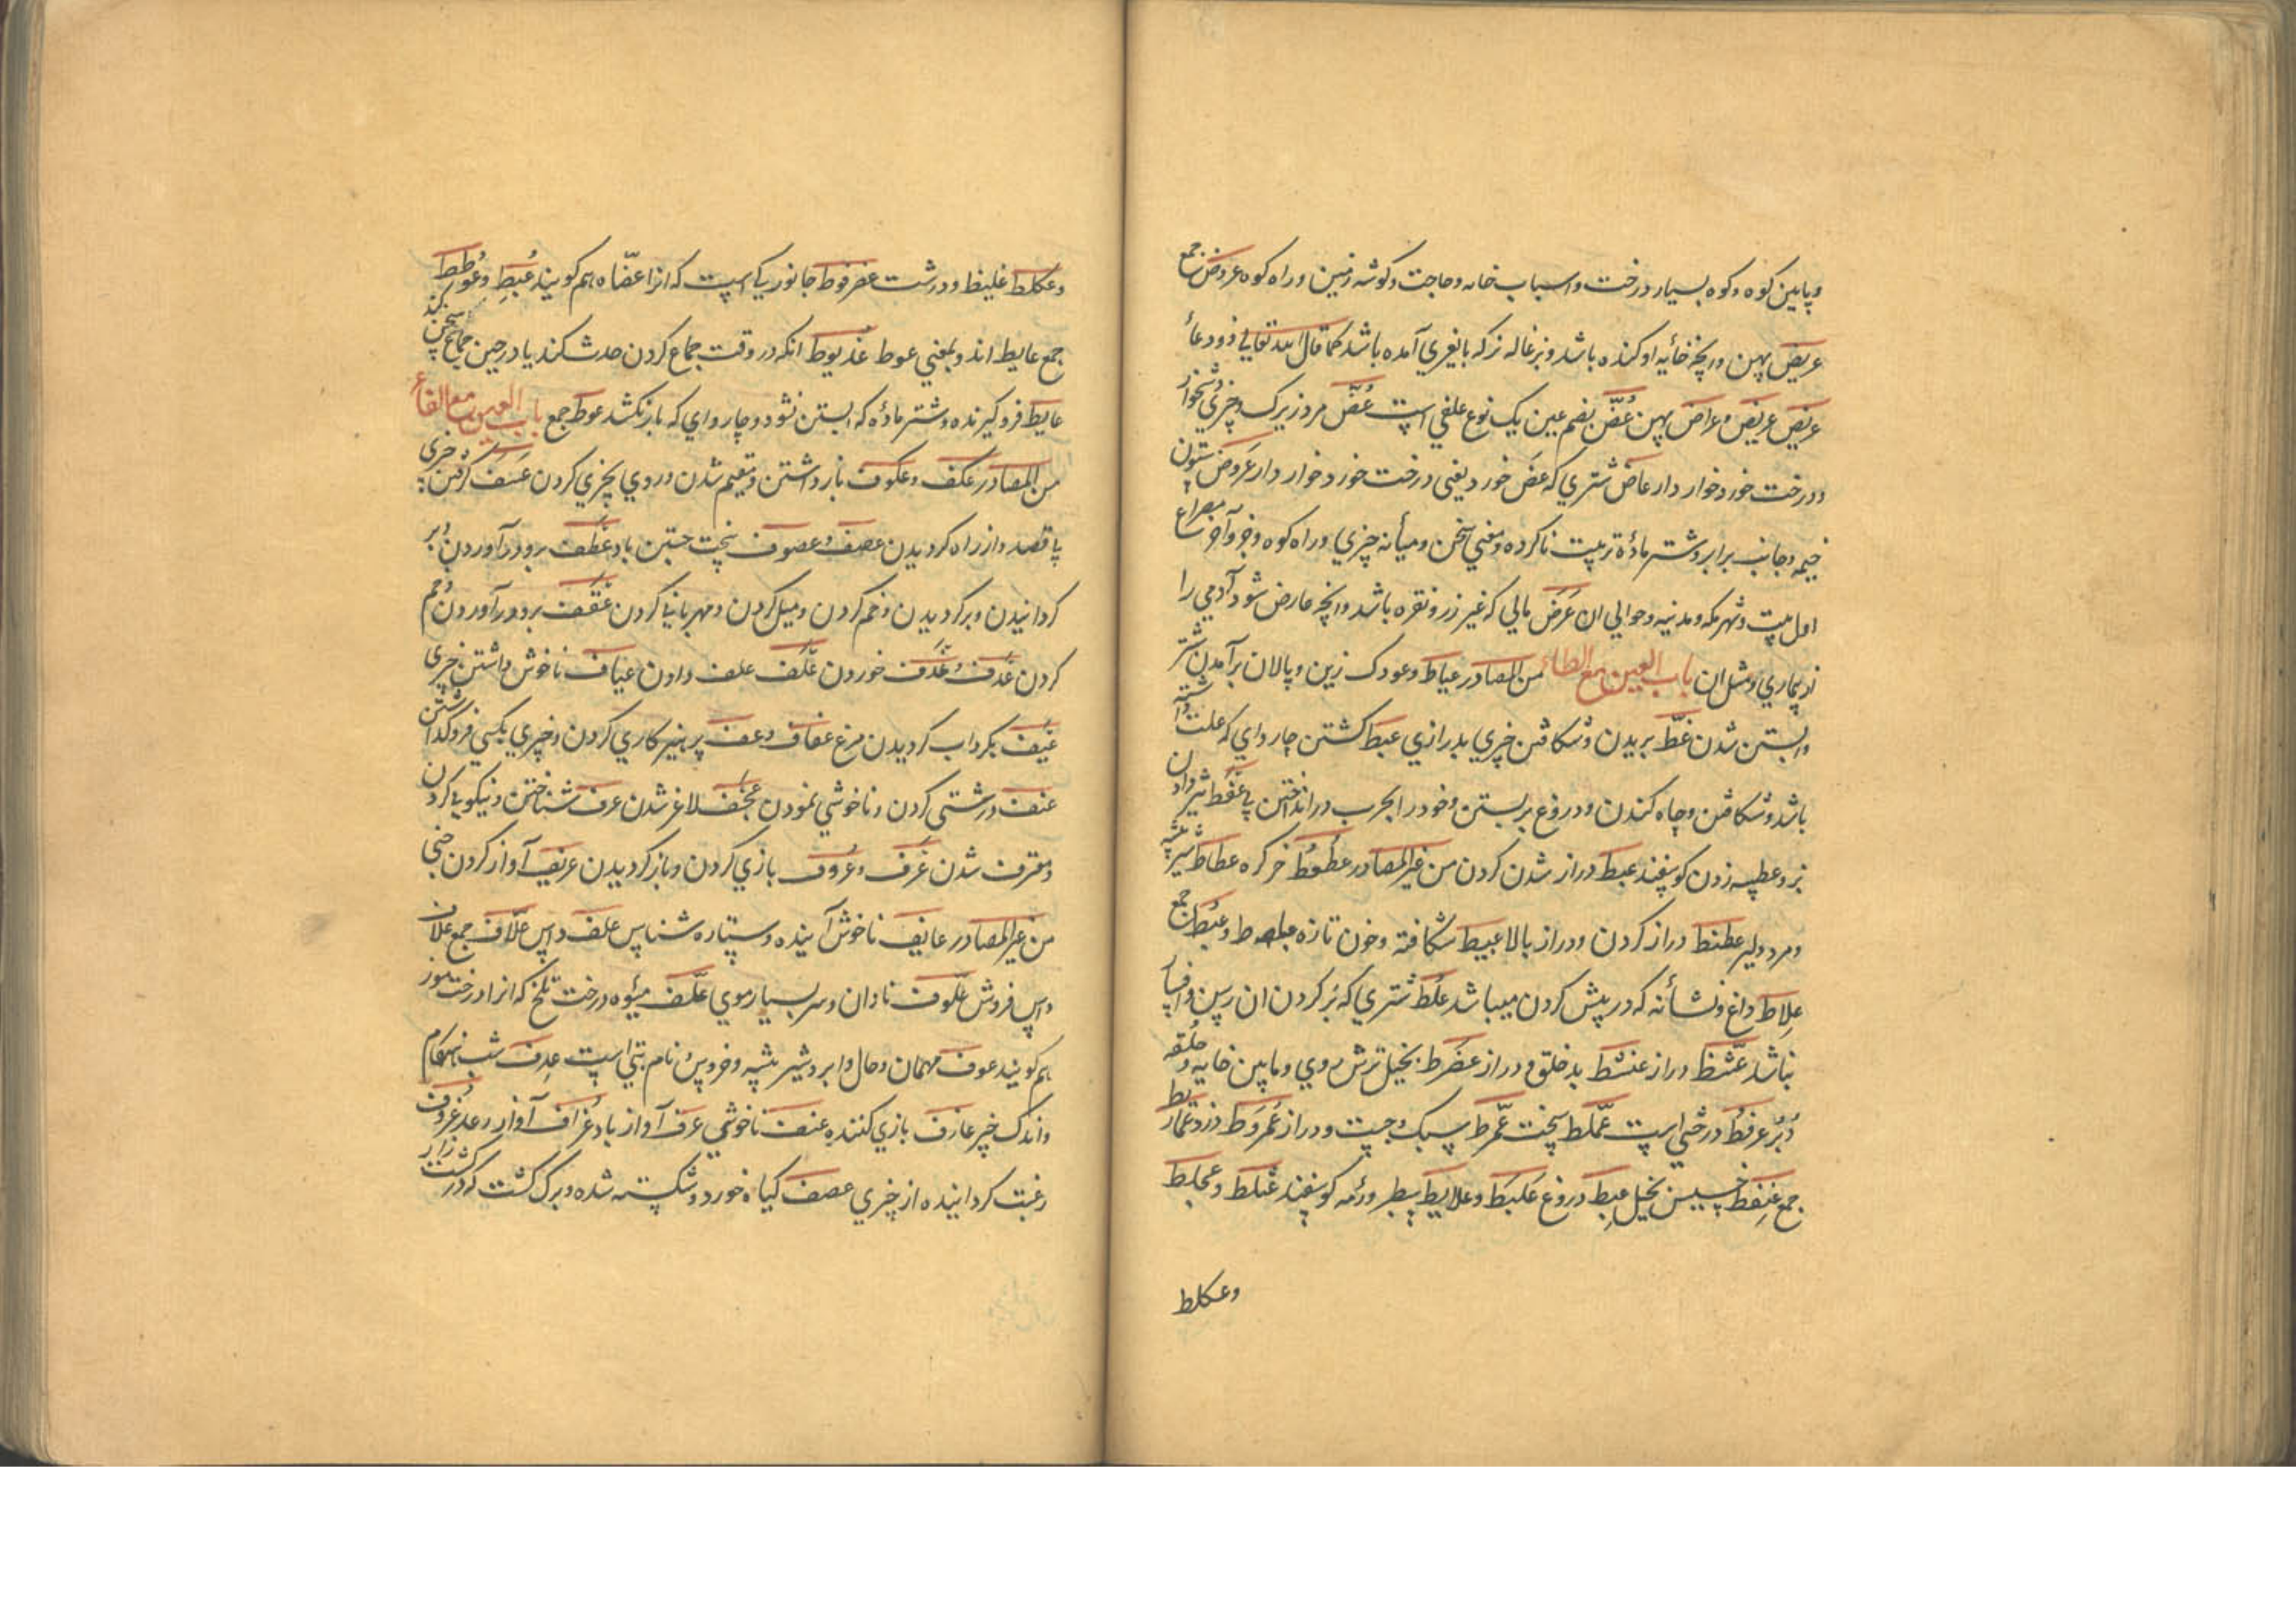 وپایین کوه وکوه بسیار درخت واسباب خانه وحاجت وکوشه زمین وراه کوه عروض جمع
عریض پهن وانچه خائیه او کنده باشد وبزغاله نر که بابغری آمده باشد کما قال الله تعالی فذو دعاء
عریض عریض وعراض پهن عُضّ بضم عین یک نوع علفی است عِضّ مرد زیرک وچیزی دشخوار
ودرخت خورد خوار دار عاض شتری که عض خورد یعنی درخت خورد خوار دار عروض ستون
خیمه وجانب برابر وشتر مادهٔ تربیت ناکرده ومعنی سخن ومیأنه چیزی وراه کوه وجز وآخر مصراع
اول بیت وشهر مکه ومدینه وحوالی ان عَرَض مالی که غیر زر ونقره باشد وانچه عارض شود آدمی را
از بیماری ومثل ان باب العین مع الطاء من المصادر عیاط وعودک زین وپالان برآمدن شتر
وابستن شدن عطّ بریدن وشکافتن چیزی بدرازی عبط کشتن چاروای که علت داشته
باشد وشکافتن وچاه کندن ودروغ بربستن وخود را بحرب در انداختن بی عفط تیز دادن
بز وعطسه زدن کوسفند عبط دراز شدن کردن من غیر المصادر عطعط خرکره عطاط شیر بیشه
ومرد دلیر عطنط دراز کردن ودراز بالا عبیط شکافته وخون تازه وعبط جمع
عِلاط داغ ونشأنه که در پیش کردن میباشد عُلُط شتری که بر کردن ان رسن وافسار
نباشد عشنط دراز عنشط بدخلق ودراز عضرط بخیل ترش روی ومابین خایه وحلقه
دُبُر عرفط درختی است عملّط سخت عمرّط سبک وچست ودراز عمروط دزد عماریط
جمع عِنفِط خسیس بخیل عبط دروغ علبط وعلابط سطبر ورمه کوسفند عثلط وعجلط
وعکلط
وعکلط غلیظ ودرشت عضرفوط جانوریکی است که انرا عضاه هم کویند عُبط وعُوطط
جمع عایط اند وبمعنی عوط عذیوط انکه در وقت جماع کردن حدث کند یا در حین جماع سخن کند
عایط فروکیرنده وشتر مادهٔ که ابستن نشود وچاروای که بار نکشد عوط جمع باب العین مع الفاء
من المصادر عکف وعکوف باز داشتن ومقیم شدن وروی بچیزی کردن عسف کرفتن چیزی
با قصد واز راه کردیدن عصف وعصوف سخت جستن باد عطف بر ودر آوردن وبر
کردانیدن وبرکردیدن وخم کردن ومیل کردن ومهربانی کردن عقف بر ودر آوردن وخم
کردن عدف وعذف خوردن علف علف دادن عیاف ناخوش داشتن چیزی
عیف بکرداب کردیدن مرغ عفاف وعف پرهیزکاری کردن وچیزی بکسی فروکذاشتن
عنف درشتی کردن وناخوشی نمودن عجف لاغر شدن عرف شناختن ونیکویی کردن
ومقرف شدن عزف وعزوف بازی کردن وباز کردیدن عزیف آواز کردن جنی
من غیر المصادر عایف ناخوش آینده وستاره شناس علف واس علّاف جمع علاف
واس فروش علّوف نادان وسر بسیار موی علّف میوه درخت تلخ که انرا درخت موز
هم کویند عوف مهمان وحال وابر وشیر بیشه وخروس ونام بتی است عِدف شب هنکام
واندک چیز عازف بازی کننده عنف ناخوشی عزف آواز باد عزاف آواز رعد عزوف
رغبت کرداننده از چیزی عصف کیاه خورد وشکسته شده وبرک کشت که در کشت زار